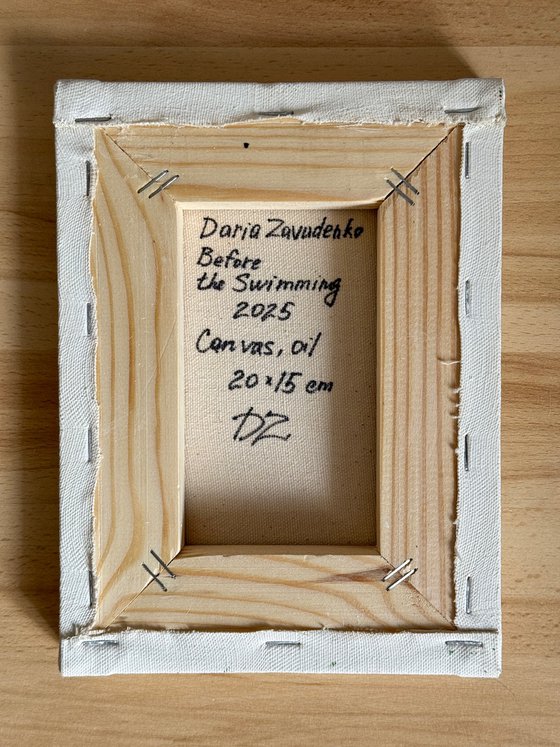 Daria Zavadenko
Before
the Swimming
2025
Canvas, oil
20×15 cm
DZ